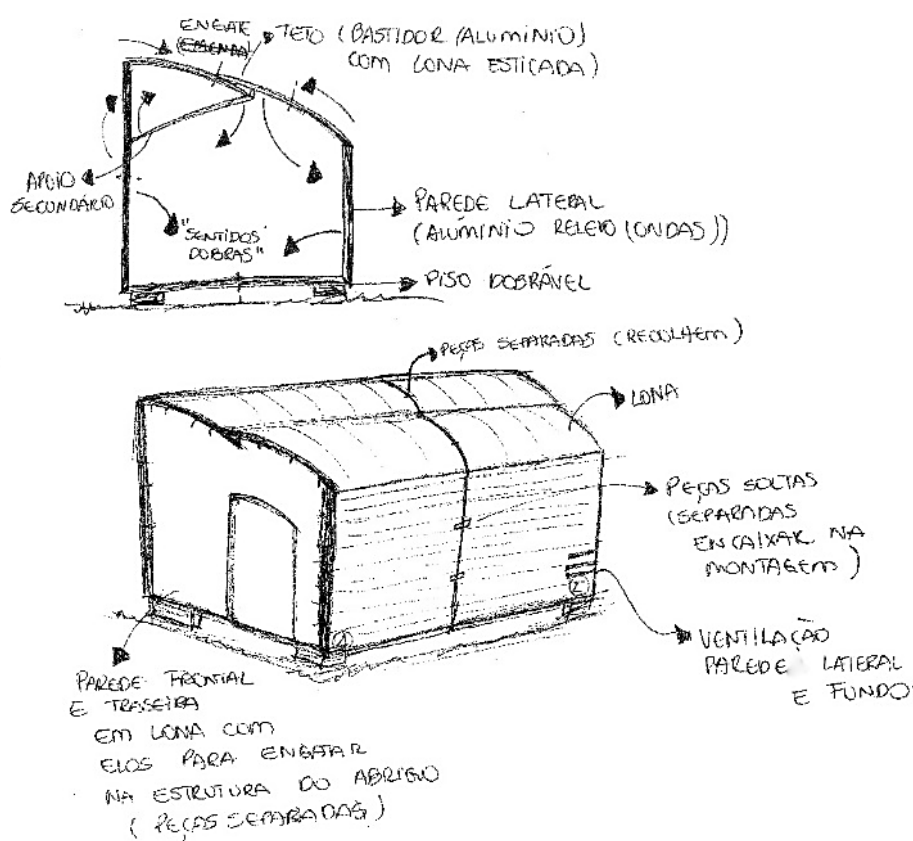 ENGATE
(EMENDA)
TETO (BASTIDOR (ALUMÍNIO)
COM LONA ESTICADA)
APOIO
SECUNDÁRIO
"SENTIDOS
DOBRAS"
PAREDE LATERAL
(ALUMÍNIO RELEVO (ONDAS))
PISO DOBRÁVEL
PEÇAS SEPARADAS (RECOLHEM)
LONA
PEÇAS SOLTAS
(SEPARADAS
ENCAIXAR NA
MONTAGEM)
1
2
VENTILAÇÃO
PAREDE LATERAL
E FUNDO
PAREDE FRONTAL
E TRASEIRA
EM LONA COM
ELOS PARA ENGATAR
NA ESTRUTURA DO ABRIGO
(PEÇAS SEPARADAS)